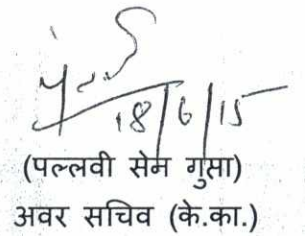 18/6/15
(पल्लवी सेन गुप्ता)
अवर सचिव (के.का.)